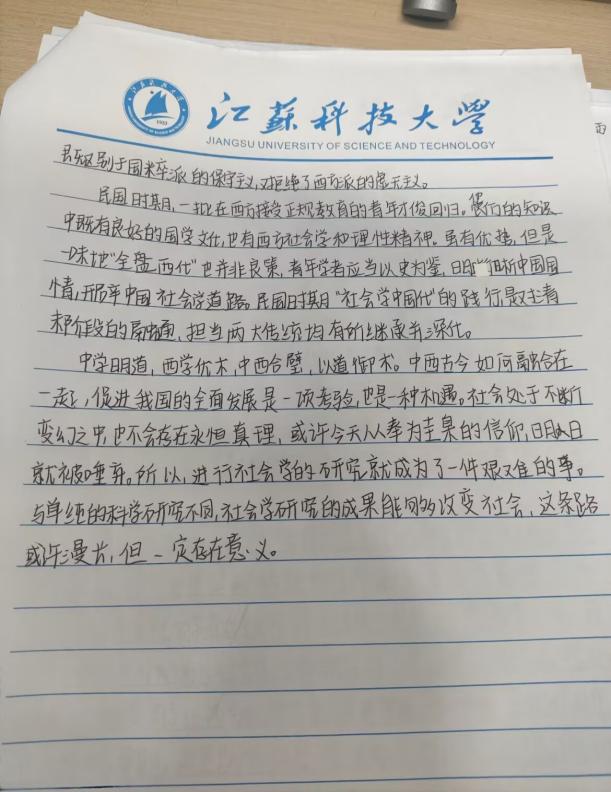 江蘇科技大学
JIANGSU UNIVERSITY OF SCIENCE AND TECHNOLOGY
1933
别于国粹派的保守主义,又拒绝了西方派的虚无主义。
民国时期,一批在西方接受正规教育的青年才俊回归。他们的知识
中既有良好的国学文化,也有西方社会学和理性精神。虽有优势,但是
一味地“全盘西化”也并非良策,青年学者应当以史为鉴,明晰中国国
情,开辟中国社会学道路。民国时期“社会学中国化”的践行
阶段的融通,担当两大传统均有所继承并深化。
中学明道,西学优术,中西合璧,以道御术。中西古今如何融合在
一起,促进我国的全面发展是一项考验,也是一种机遇。社会处于不断
变幻之中,也不会存在永恒真理,或许今天人奉为圭臬的信仰,明日
就被唾弃。所以,进行社会学的研究就成为了一件艰难的事。
与单纯的科学研究不同,社会学研究的成果能够改变社会,这条路
或许漫长,但一定存在意义。
雨